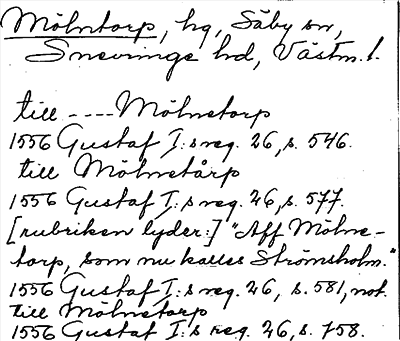 Mölntorp, hg, Säby sn,
Snevringe hd, Västm. l.
till ---- Mölnetorp
1556 Gustaf I:s reg. 26, s. 546.
till Mölnetårp
1556 Gustaf I:s reg. 26, s. 577.
[rubriken lyder:] "Aff Mölne-
torp, som nu kalles Strömsholm."
1556 Gustaf I:s reg. 26, s. 581, not.
till Mölnetorp
1556 Gustaf I:s reg. 26, s. 758.